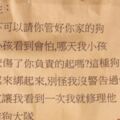 ：
不可以請你管好你家的狗
小孩看到會怕,那天我小孩
要傷了你負責的起嗎?這種狗
起來綁起來,別怪我沒警告過
讓我看到一次我就修理他
狗大隊